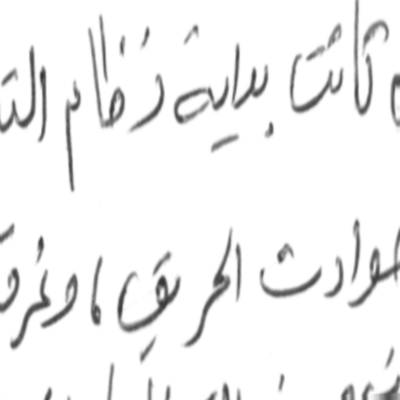 كانت بداية نظام الت
حوادث الحريق، وغرو